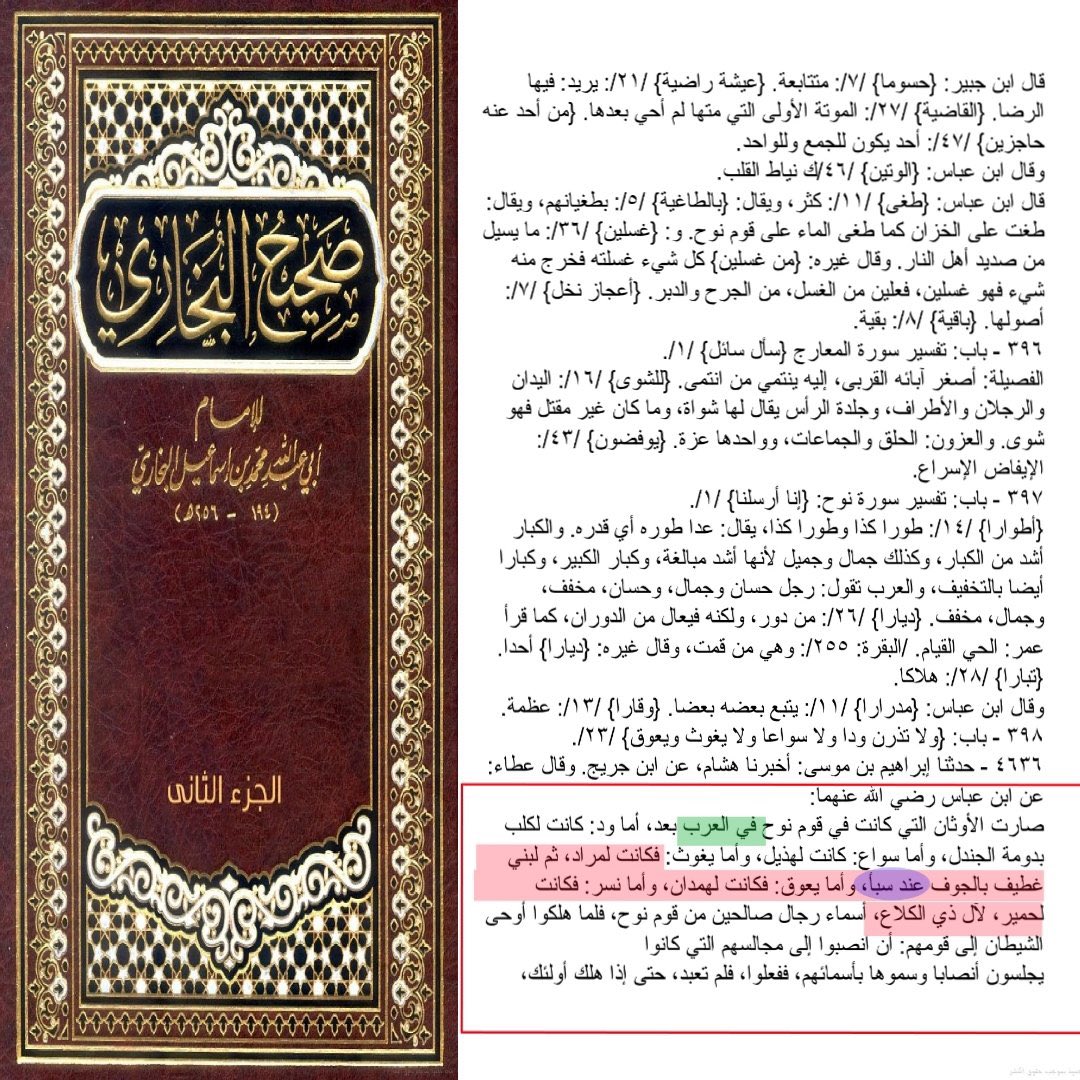 صحيح البخاري
للإمام
أبي عبد الله محمد بن إسماعيل البخاري
(١٩٤ - ٢٥٦هـ)
الجزء الثانى
قال ابن جبير: {حسوما} /٧/: متتابعة. {عيشة راضية} /٢١/: يريد: فيها
الرضا. {القاضية} /٢٧/: الموتة الأولى التي متها لم أحي بعدها. {من أحد عنه
حاجزين} /٤٧/: أحد يكون للجمع وللواحد.
وقال ابن عباس: {الوتين} /٤٦/ك نياط القلب.
قال ابن عباس: {طغى} /١١/: كثر، ويقال: {بالطاغية} /٥/: بطغيانهم، ويقال:
طغت على الخزان كما طغى الماء على قوم نوح. و: {غسلين} /٣٦/: ما يسيل
من صديد أهل النار. وقال غيره: {من غسلين} كل شيء غسلته فخرج منه
شيء فهو غسلين، فعلين من الغسل، من الجرح والدبر. {أعجاز نخل} /٧/:
أصولها. {باقية} /٨/: بقية.
٣٩٦ - باب: تفسير سورة المعارج {سأل سائل} /١/.
الفصيلة: أصغر آبائه القربى، إليه ينتمي من انتمى. {للشوى} /١٦/: اليدان
والرجلان والأطراف، وجلدة الرأس يقال لها شواة، وما كان غير مقتل فهو
شوى. والعزون: الحلق والجماعات، وواحدها عزة. {يوفضون} /٤٣/:
الإيفاض الإسراع.
٣٩٧ - باب: تفسير سورة نوح: {إنا أرسلنا} /١/.
{أطوارا} /١٤/: طورا كذا وطورا كذا، يقال: عدا طوره أي قدره. والكبار
أشد من الكبار، وكذلك جمال وجميل لأنها أشد مبالغة، وكبار الكبير، وكبارا
أيضا بالتخفيف، والعرب تقول: رجل حسان وجمال، وحسان، مخفف،
وجمال، مخفف. {ديارا} /٢٦/: من دور، ولكنه فيعال من الدوران، كما قرأ
عمر: الحي القيام. /البقرة: ٢٥٥/: وهي من قمت، وقال غيره: {ديارا} أحدا.
{تبارا} /٢٨/: هلاكا.
وقال ابن عباس: {مدرارا} /١١/: يتبع بعضه بعضا. {وقارا} /١٣/: عظمة.
٣٩٨ - باب: {ولا تذرن ودا ولا سواعا ولا يغوث ويعوق} /٢٣/.
٤٦٣٦ - حدثنا إبراهيم بن موسى: أخبرنا هشام، عن ابن جريج. وقال عطاء:
عن ابن عباس رضي الله عنهما:
صارت الأوثان التي كانت في قوم نوح في العرب بعد، أما ود: كانت لكلب
بدومة الجندل، وأما سواع: كانت لهذيل، وأما يغوث: فكانت لمراد، ثم لبني
غطيف بالجوف عند سبأ، وأما يعوق: فكانت لهمدان، وأما نسر: فكانت
لحمير، لآل ذي الكلاع، أسماء رجال صالحين من قوم نوح، فلما هلكوا أوحى
الشيطان إلى قومهم: أن انصبوا إلى مجالسهم التي كانوا
يجلسون أنصابا وسموها بأسمائهم، ففعلوا، فلم تعبد، حتى إذا هلك أولئك،